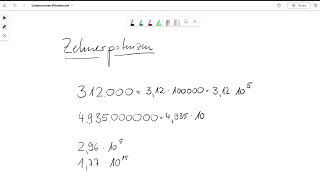 Unbenanntes Whiteboard
Zehnerpotenzen
312.000 = 3,12 · 100000 = 3,12 · 10⁵
4.935.000000 = 4,935 · 10
2,96 · 10⁵
1,77 · 10¹⁵